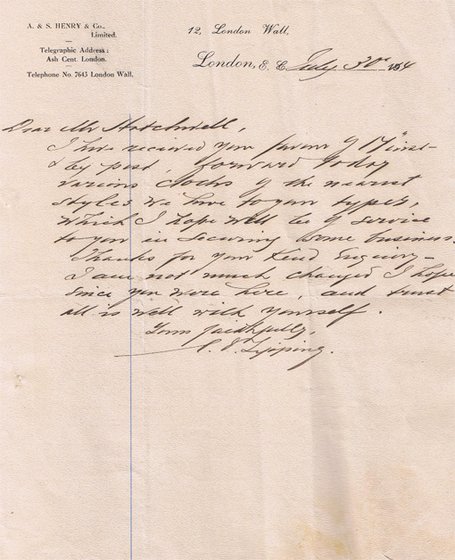 A. & S. HENRY & Co.,
Limited.
Telegraphic Address:
Ash Cent London.
Telephone No. 7643 London Wall.
12, London Wall,
London, E. C. July 30th
Dear Mr
I have received your favour of 17th inst
& by post, forward today
various cloths of the nearest
styles we have to your types,
which I hope will be of service
to you in securing some business.
Thanks for your kind Enquiry -
I am not much changed I hope
since you were here, and trust
all is well with yourself.
Yours faithfully,
Tipping.